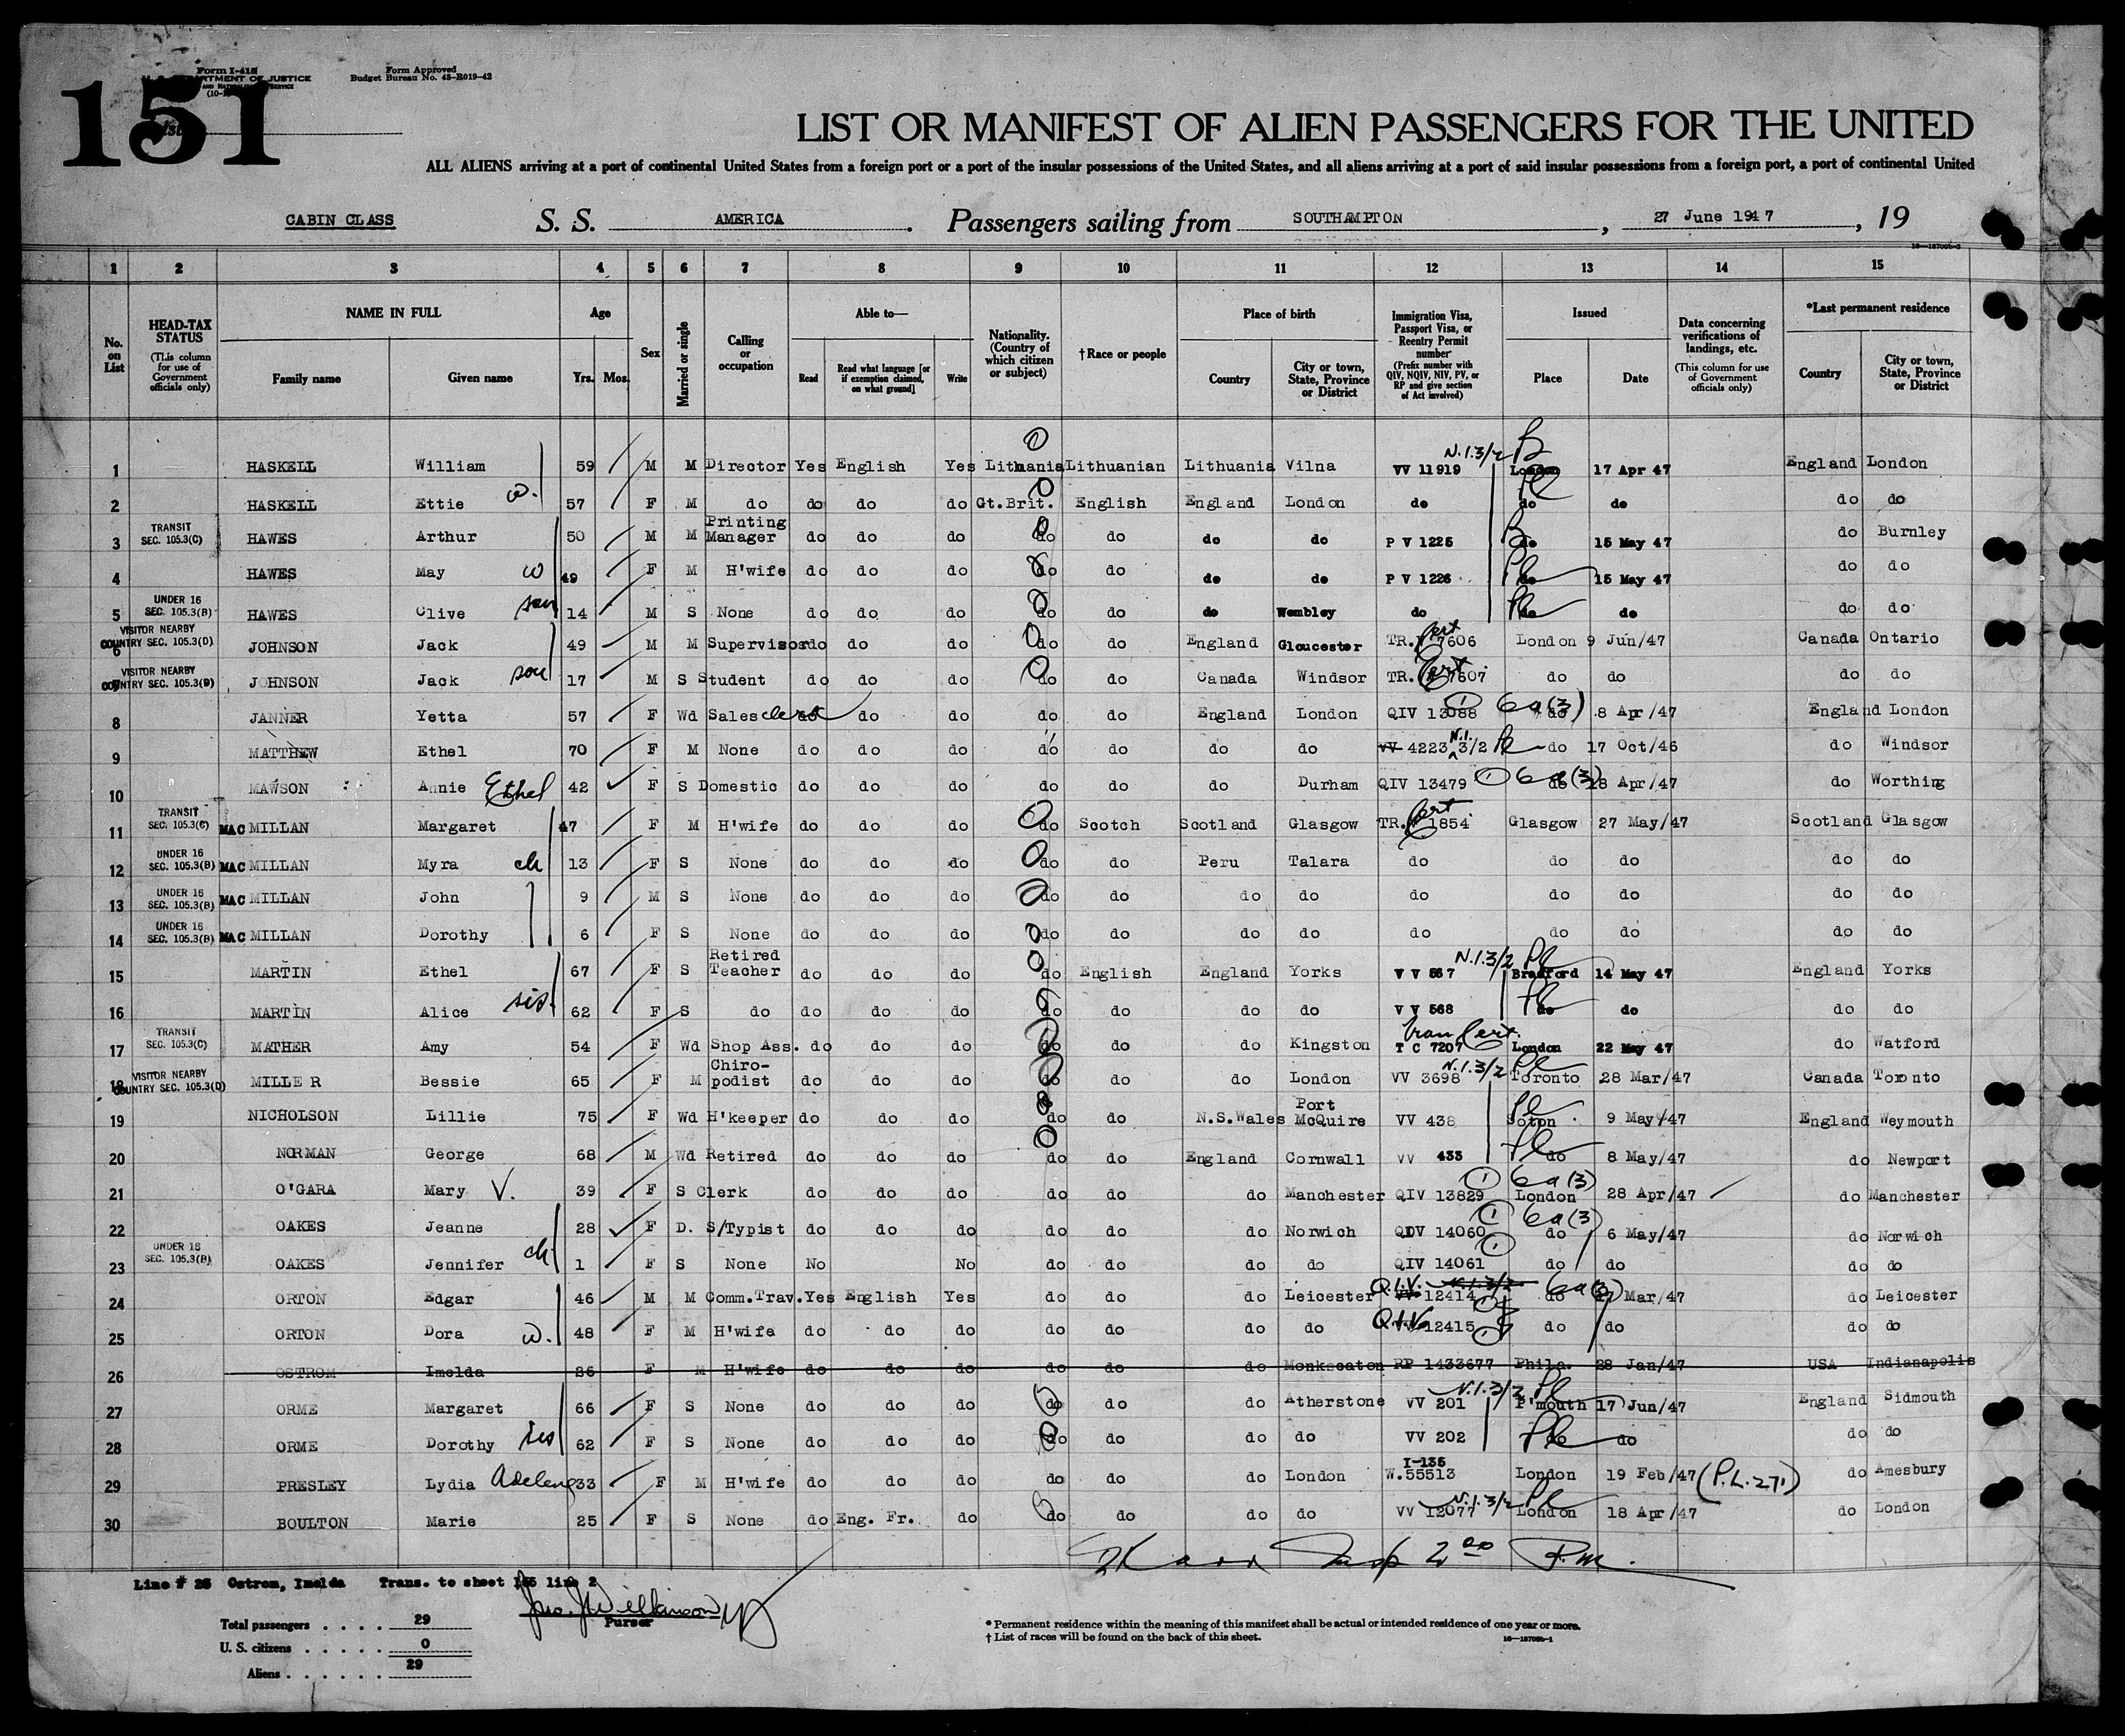 Form I-415
U. S. DEPARTMENT OF JUSTICE
AND NATURALIZATION SERVICE
Form Approved
Budget Bureau No. 43-R019-42
151
LIST OR MANIFEST OF ALIEN PASSENGERS FOR THE UNITED
ALL ALIENS arriving at a port of continental United States from a foreign port or a port of the insular possessions of the United States, and all aliens arriving at a port of said insular possessions from a foreign port, a port of continental United
CABIN CLASS S. S. AMERICA. Passengers sailing from SOUTHAMPTON, 27 June 1947, 19
1 2 3 4 5 6 7 8 9 10 11 12 13 14 15
No. on List
HEAD-TAX STATUS (This column for use of Government officials only)
NAME IN FULL Family name Given name
Age Yrs. Mos.
Sex
Married or single
Calling or occupation
Able to— Read Read what language [or if exemption claimed, on what ground] Write
Nationality. (Country of which citizen or subject)
†Race or people
Place of birth Country City or town, State, Province or District
Immigration Visa, Passport Visa, or Reentry Permit number (Prefix number with QIV, NQIV, NIV, PV, or RP and give section of Act involved)
Issued Place Date
Data concerning verifications of landings, etc. (This column for use of Government officials only)
*Last permanent residence Country City or town, State, Province or District
1 HASKELL William 59 M M Director Yes English Yes Lithuania Lithuanian Lithuania Vilna N.I.3/2 VV 11919 London 17 Apr 47 England London
2 HASKELL Ettie w. 57 F M do do do do Gt.Brit. English England London do do do do do
3 TRANSIT SEC. 105.3(C) HAWES Arthur 50 M M Printing Manager do do do do do do do P V 1225 do 15 May 47 do Burnley
4 HAWES May w 49 F M H'wife do do do do do do do P V 1226 do 15 May 47 do do
5 UNDER 16 SEC. 105.3(B) HAWES Clive son 14 M S None do do do do do do Wembley do do do do do
6 VISITOR NEARBY COUNTRY SEC. 105.3(D) JOHNSON Jack 49 M M Supervisor do do do do do England Gloucester TR. Cert 7606 London 9 Jun/47 Canada Ontario
7 VISITOR NEARBY COUNTRY SEC. 105.3(D) JOHNSON Jack son 17 M S Student do do do do do Canada Windsor TR. Cert 7607 do do do do
8 JANNER Yetta 57 F Wd Sales clerk do do do do do England London QIV 13088 1 6a(3) do 8 Apr/47 England London
9 MATTHEW Ethel 70 F M None do do do do do do do VV 4223 N.I. 3/2 do 17 Oct/46 do Windsor
10 MAWSON Annie Ethel 42 F S Domestic do do do do do do Durham QIV 13479 1 6a(3) do 28 Apr/47 do Worthing
11 TRANSIT SEC. 105.3(C) MAC MILLAN Margaret 47 F M H'wife do do do do Scotch Scotland Glasgow TR. Cert 1854 Glasgow 27 May/47 Scotland Glasgow
12 UNDER 16 SEC. 105.3(B) MAC MILLAN Myra ch 13 F S None do do do do do Peru Talara do do do do do
13 UNDER 16 SEC. 105.3(B) MAC MILLAN John 9 M S None do do do do do do do do do do do do
14 UNDER 16 SEC. 105.3(B) MAC MILLAN Dorothy 6 F S None do do do do do do do do do do do do
15 MARTIN Ethel 67 F S Retired Teacher do do do do English England Yorks N.I.3/2 V V 567 Bradford 14 May 47 England Yorks
16 MARTIN Alice sis. 62 F S do do do do do do do do V V 568 do do do do
17 TRANSIT SEC. 105.3(C) MATHER Amy 54 F Wd Shop Ass. do do do do do do Kingston Tran Cert. T C 7207 London 22 May 47 do Watford
18 VISITOR NEARBY COUNTRY SEC. 105.3(D) MILLER Bessie 65 F M Chiropodist do do do do do do London N.I.3/2 VV 3698 Toronto 28 Mar/47 Canada Toronto
19 NICHOLSON Lillie 75 F Wd H'keeper do do do do do N.S.Wales Port McQuire VV 438 Soton 9 May/47 England Weymouth
20 NORMAN George 68 M Wd Retired do do do do do England Cornwall VV 433 do 8 May/47 do Newport
21 O'GARA Mary V. 39 F S Clerk do do do do do do Manchester QIV 13829 1 6a(3) London 28 Apr/47 do Manchester
22 OAKES Jeanne 28 F D. S/Typist do do do do do do Norwich QIV 14060 1 6a(3) do 6 May/47 do Norwich
23 UNDER 16 SEC. 105.3(B) OAKES Jennifer ch 1 F S None No No do do do do QIV 14061 1 do do do do
24 ORTON Edgar 46 M M Comm.Trav. Yes English Yes do do do Leicester Q.I.V. VV 12414 N.I.3/2 6a(3) do 27 Mar/47 do Leicester
25 ORTON Dora w. 48 F M H'wife do do do do do do do Q.I.V. VV 12415 do do do do
26 OSTROM Imelda 26 F M H'wife do do do do do do Monkseaton RP 1433677 Phila. 28 Jan/47 USA Indianapolis
27 ORME Margaret 66 F S None do do do do do do Atherstone N.I.3/2 VV 201 P'mouth 17 Jun/47 England Sidmouth
28 ORME Dorothy sis 62 F S None do do do do do do do VV 202 do do do do
29 PRESLEY Lydia Adelene 33 F M H'wife do do do do do do London I-135 W.55513 London 19 Feb/47 (P.L.271) do Amesbury
30 BOULTON Marie 25 F S None do Eng. Fr. do do do do do N.I.3/2 VV 12077 London 18 Apr/47 do London
Line # 26 Ostrom, Imelda Trans. to sheet 155 line 2
Jno. J Wilkinson
Purser
Total passengers . . . . 29
U. S. citizens . . . . . 0
Aliens . . . . . . 29
* Permanent residence within the meaning of this manifest shall be actual or intended residence of one year or more.
† List of races will be found on the back of this sheet.